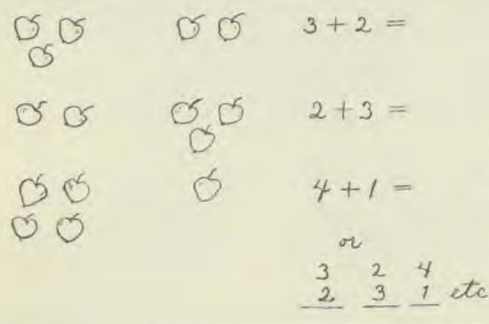 3 + 2 =
2 + 3 =
4 + 1 =
or
3 2 4
2 3 1 etc